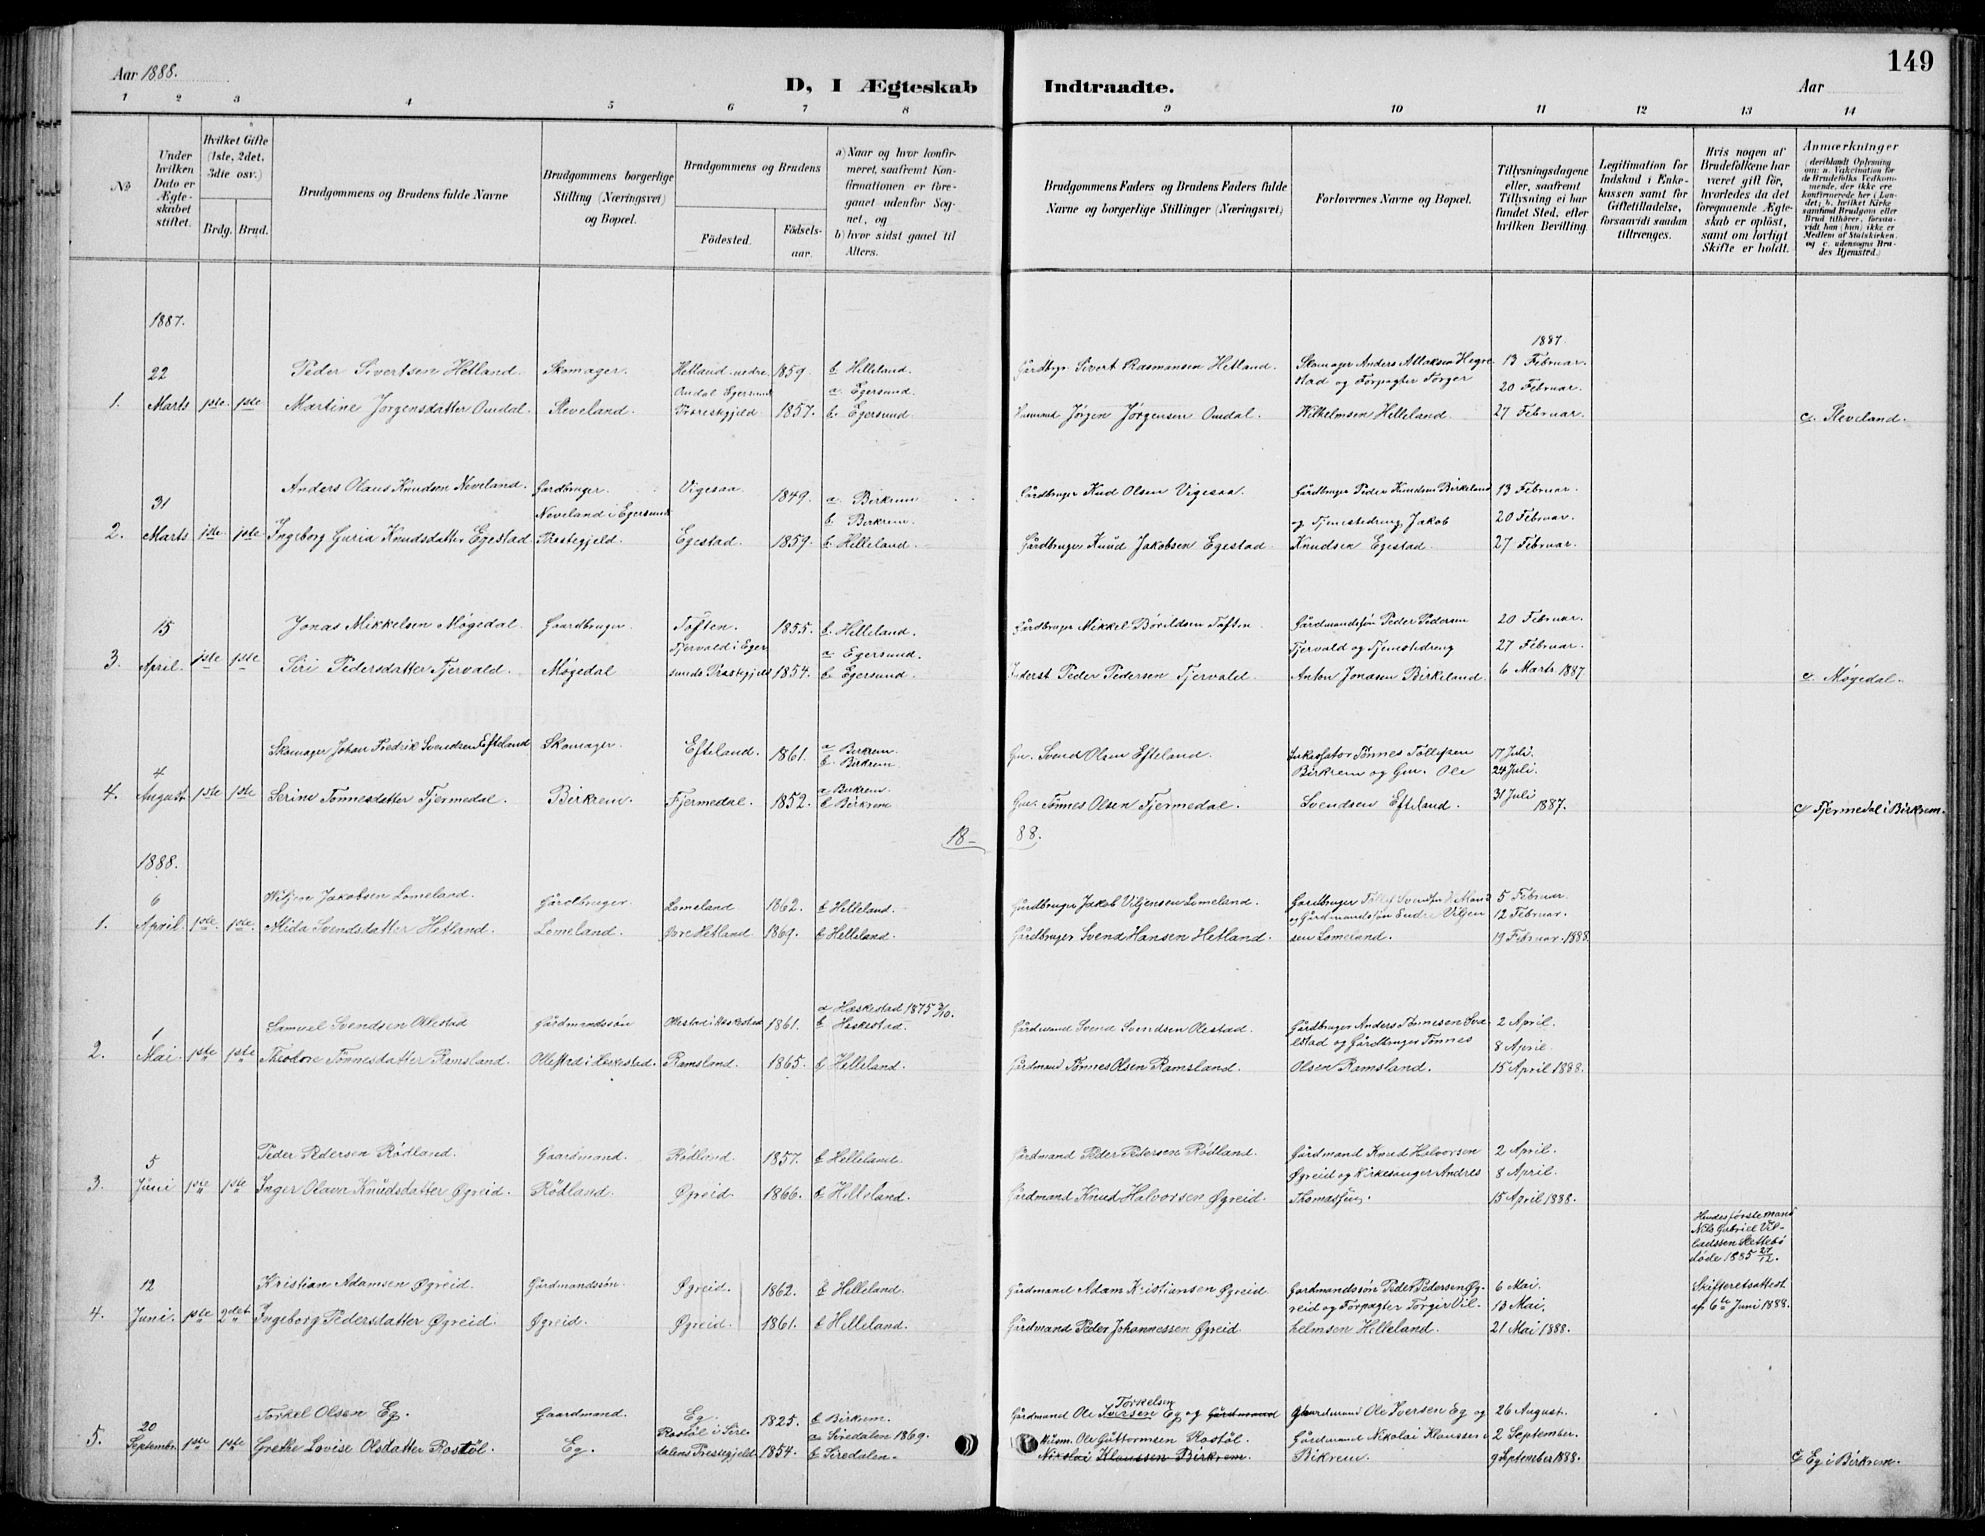 Aar 1888.
D, I Ægteskab Indtraadte.
Aar
149
1 2 3 4 5 6 7 8 9 10 11 12 13 14
No
Under hvilken Dato er Ægteskabet stiftet.
Hvilket Gifte (1ste, 2det, 3die osv.)
Brdg. Brud.
Brudgommens og Brudens fulde Navne
Brudgommens borgerlige Stilling (Næringsvei) og Bopæl.
Brudgommens og Brudens
Födested. Födsels-aar.
a) Naar og hvor konfirmeret, saafremt Konfirmationen er foregaaet udenfor Sognet, og
b) hvor sidst gaaet til Alters.
Brudgommens Faders og Brudens Faders fulde Navne og borgerlige Stillinger (Næringsvei)
Forlovernes Navne og Bopæl.
Tillysningsdagene eller, saafremt Tillysning ei har fundet Sted, efter hvilken Bevilling.
Legitimation for Indskud i Enkekassen samt for Giftetilladelse, forsaavidt saadan tiltrænges.
Hvis nogen af Brudefolkene har været gift før, hvorledes da det foregaaende Ægteskab er opløst, samt om lovligt Skifte er holdt.
Anmærkninger
(deriblandt Oplysning om: a. Vakcination for de Brudefolks Vedkommende, der ikke ere konfirmerede her i Landet; b. hvilket Kirkesamfund Brudgom eller Brud tilhører, forsaavidt han (hun) ikke er Medlem af Statskirken, og c. udensogns Brudes Hjemsted.)
1887.
1887
22 Peder Sivertsen Hetland. Skomager. Hetland nedre 1859. b Helleland. Gårdbgr. Sivert Rasmansen Hetland. Skomager Anders Atlaksen Hegre- 13 Februar.
Omdal Egersund a Egersund stad og Forpagter Torger 20 Februar.
1. Marts 1ste 1ste Martine Jorgensdatter Omdal. Sleveland. Præstegjeld 1857. b Egersund. Jørgen Jørgensen Omdal. Wilhelmsen Helleland. 27 Februar. c. Sleveland.
31 Anders Olaus Knudsen Neveland. Gardbruger. Vigesaa 1849. a Birkrem Gårdbruger Knud Olsen Vigesaa. Gårdbruger Peder Knudsen Birkeland 13 Februar.
Neveland i Egersund b Birkrem. og Tjenestedreng Jakob 20 Februar.
2. Marts 1ste 1ste Ingeborg Guria Knudsdatter Egestad Præstegjeld. Egestad. 1859. b Helleland. Gårdbruger Knud Jakobsen Egestad Knudsen Egestad. 27 Februar.
15 Jonas Mikkelsen Møgedal. Gaardbruger Toften. 1855. b Helleland. Gårdbruger Mikkel Børildsen Toften Gårdmandssøn Peder Pedersen 20 Februar.
Tjervald i Eger- a Egersund. Tjervald og Tjenestedreng 27 Februar.
3. April. 1ste 1ste Siri Pedersdatter Tjervald. Møgedal sunds Præstegjeld 1854. b Egersund. Inderst Peder Pedersen Tjervald. Anton Jonasen Birkeland. 6 Marts 1887 c. Møgedal.
Skomager Johan Fredrik Svendsen Efteland Skomager. Efteland. 1861. a Birkrem. b. Birkrem Gm. Svend Olsen Efteland. Inkassator Tønnes Tollefsen 17 Juli.
4 Birkrem og Gm. Ole 24 Juli.
4. August 1ste 1ste Serine Tonnesdatter Tjermedal. Birkrem. Fjermedal. 1852. a Birkrem. b Birkrem Gm. Tönnes Olsen Tjermedal. Svendsen Efteland. 31 Juli 1887. c) Tjermedal i Birkrem.
18-88.
1888.
6 Wiljen Jakobsen Lomeland. Gårdbruger Lomeland 1862. b Helleland. Gårdbruger Jakob Viljensen Lomeland. Gardbruger Tollef Svendsen Hetland 5 Februar
og Gårdmandssøn Endre Viljen- 12 Februar.
1. April. 1ste 1ste. Alida Svendsdatter Hetland. Lomeland. Øvre Hetland 1869. b Helleland. Gårdbruger Svend Hansen Hetland. sen Lomeland. 19 Februar. 1888.
1 Samuel Svendsen Ollestad Gårdmandssön Ollestad i Heskestad 1861. a Heskestad 1875 3/10. b Heskestad. Gårdmand Svend Svendsen Olestad. Gårdbruger Anders Tønnesen Sva- 2 April.
elstad og Gårdbruger Tönnes 8 April.
2. Mai. 1ste 1ste Theodore Tønnesdatter Ramsland. Ollestad i Heskestad. Ramsland. 1865. b Helleland. Gårdmand Tönnes Olsen Ramsland. Olsen Ramsland. 15 April 1888.
5 Peder Pedersen Rödland. Gaardmand. Rödland 1857. b Helleland. Gårdmand Peder Pedersen Rödland. Gårdmand Knud Halvorsen 2 April.
Øgreid og Kirkesanger Andres 8 April.
3. Juni 1ste 1ste Inger Olava Knudsdatter Øgreid. Rödland. Øgreid. 1866. b Helleland. Gårdmand Knud Halvorsen Øgreid. Thomassen. 15 April 1888.
Hendes første mand Nils Gabriel Vil- Slettebö døde 1885 27/12.
12 Kristian Adamsen Øgreid. Gårdmandssön Øgreid. 1862. b Helleland. Gårdmand Adam Kristiansen Øgreid Gardmandssön Peder Pedersen Øg- 6 Mai. Skifteretsattest
reid og Forpagter Torgir Vil- 13 Mai. af 6te Juni 1888.
4. Juni. 1ste 2det Ingeborg Pedersdatter Øgreid. Øgreid. Øgreid. 1861. b Helleland. Gårdmand Peder Johannessen Øgreid. helmsen Helleland. 21 Mai 1888.
20 Torkel Olsen Eg. Gaardmand. Eg 1825. b Birkrem. Gårdmand Ole Iversen Torkelsen Eg og Gårdmand Gaardmand Ole Iversen Eg og 26 August.
Rostøl i Sire- a Siredalen 1869. Husm. Ole Guttormsen Rostøl. Gårdmand Nikolai Klaussen 2 September.
5. Septembr. 1ste 1ste Grethe Lovise Olsdatter Rostøl. Eg. dalens Præstegjeld 1854. b Siredalen. Nicolai Klaussen Birkrem. Bikrem. 9 September 1888. c) Eg i Birkrem.